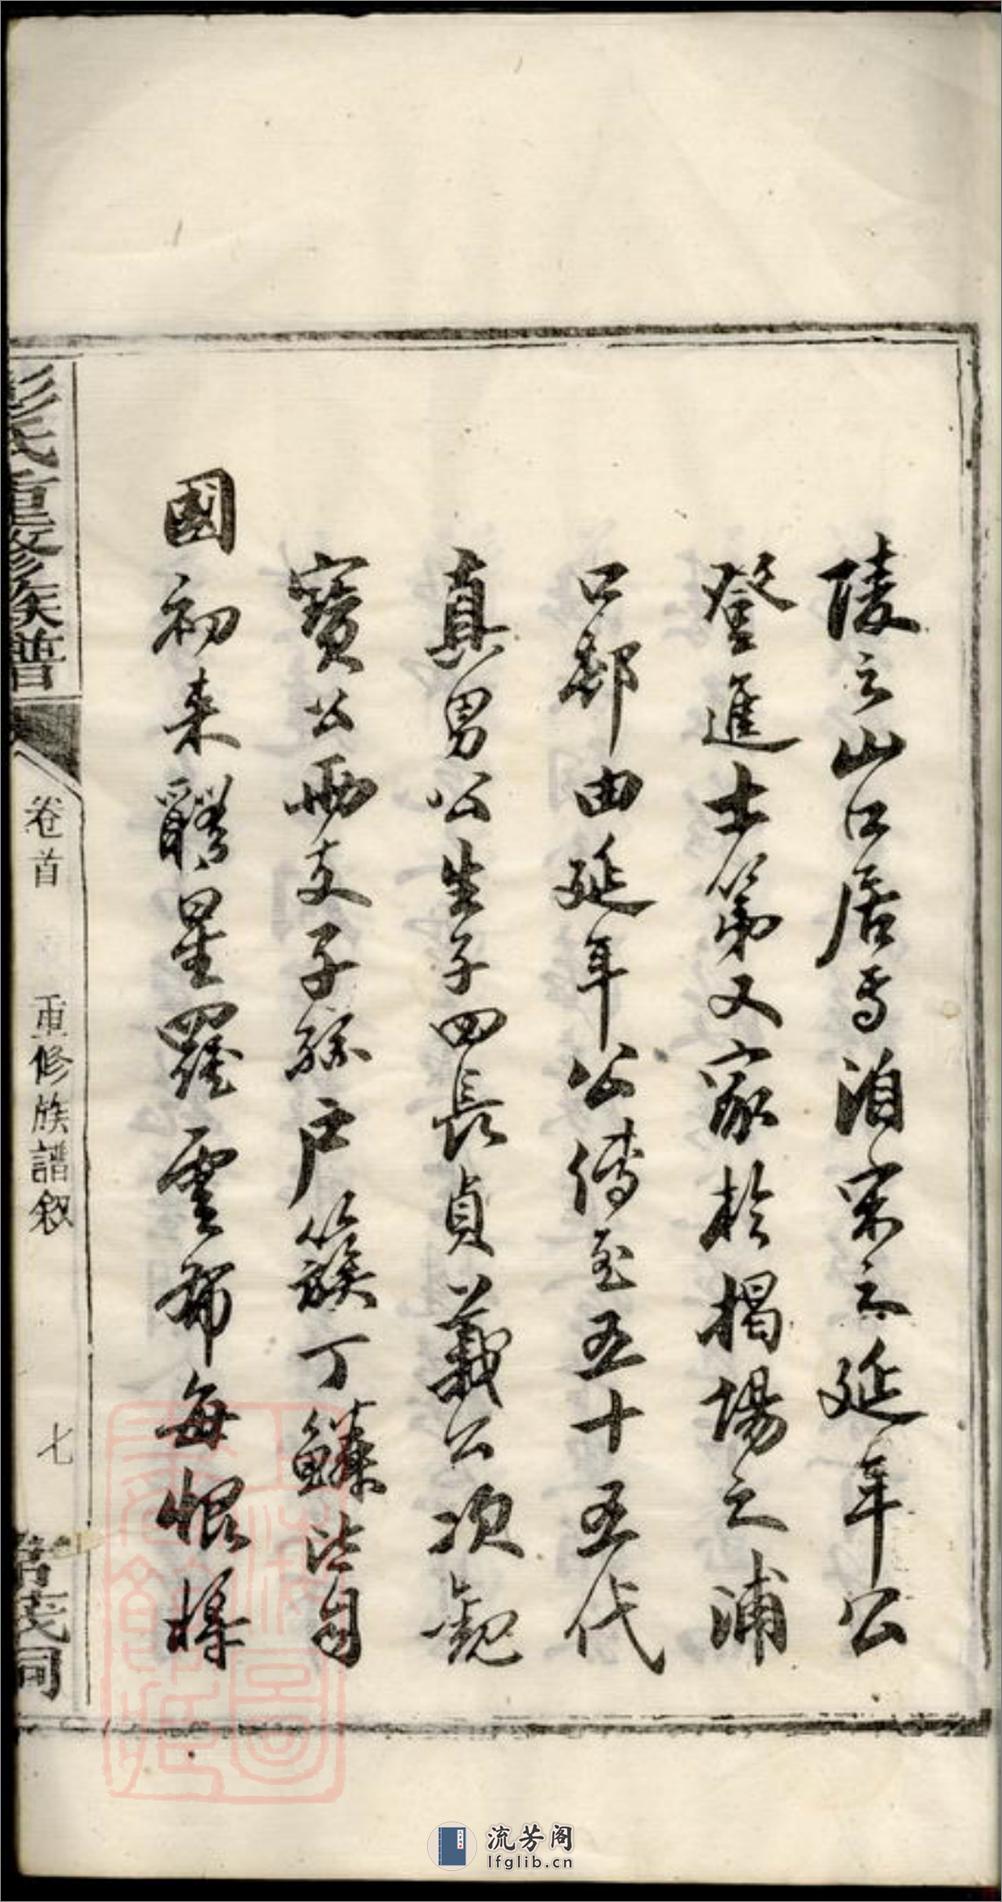 陵之山口居焉洎宋之延年公
登進士第又家於揭場之浦
口鄒由延年公傳至五十五代
真男公生子四長貞義公次觀
寶公兩支子孫戶簇丁鱗沄自
國初來醴星羅雲布每恨操
彭氏重修族譜
卷首
重修族譜叙
七
流芳阁
lfglib.cn